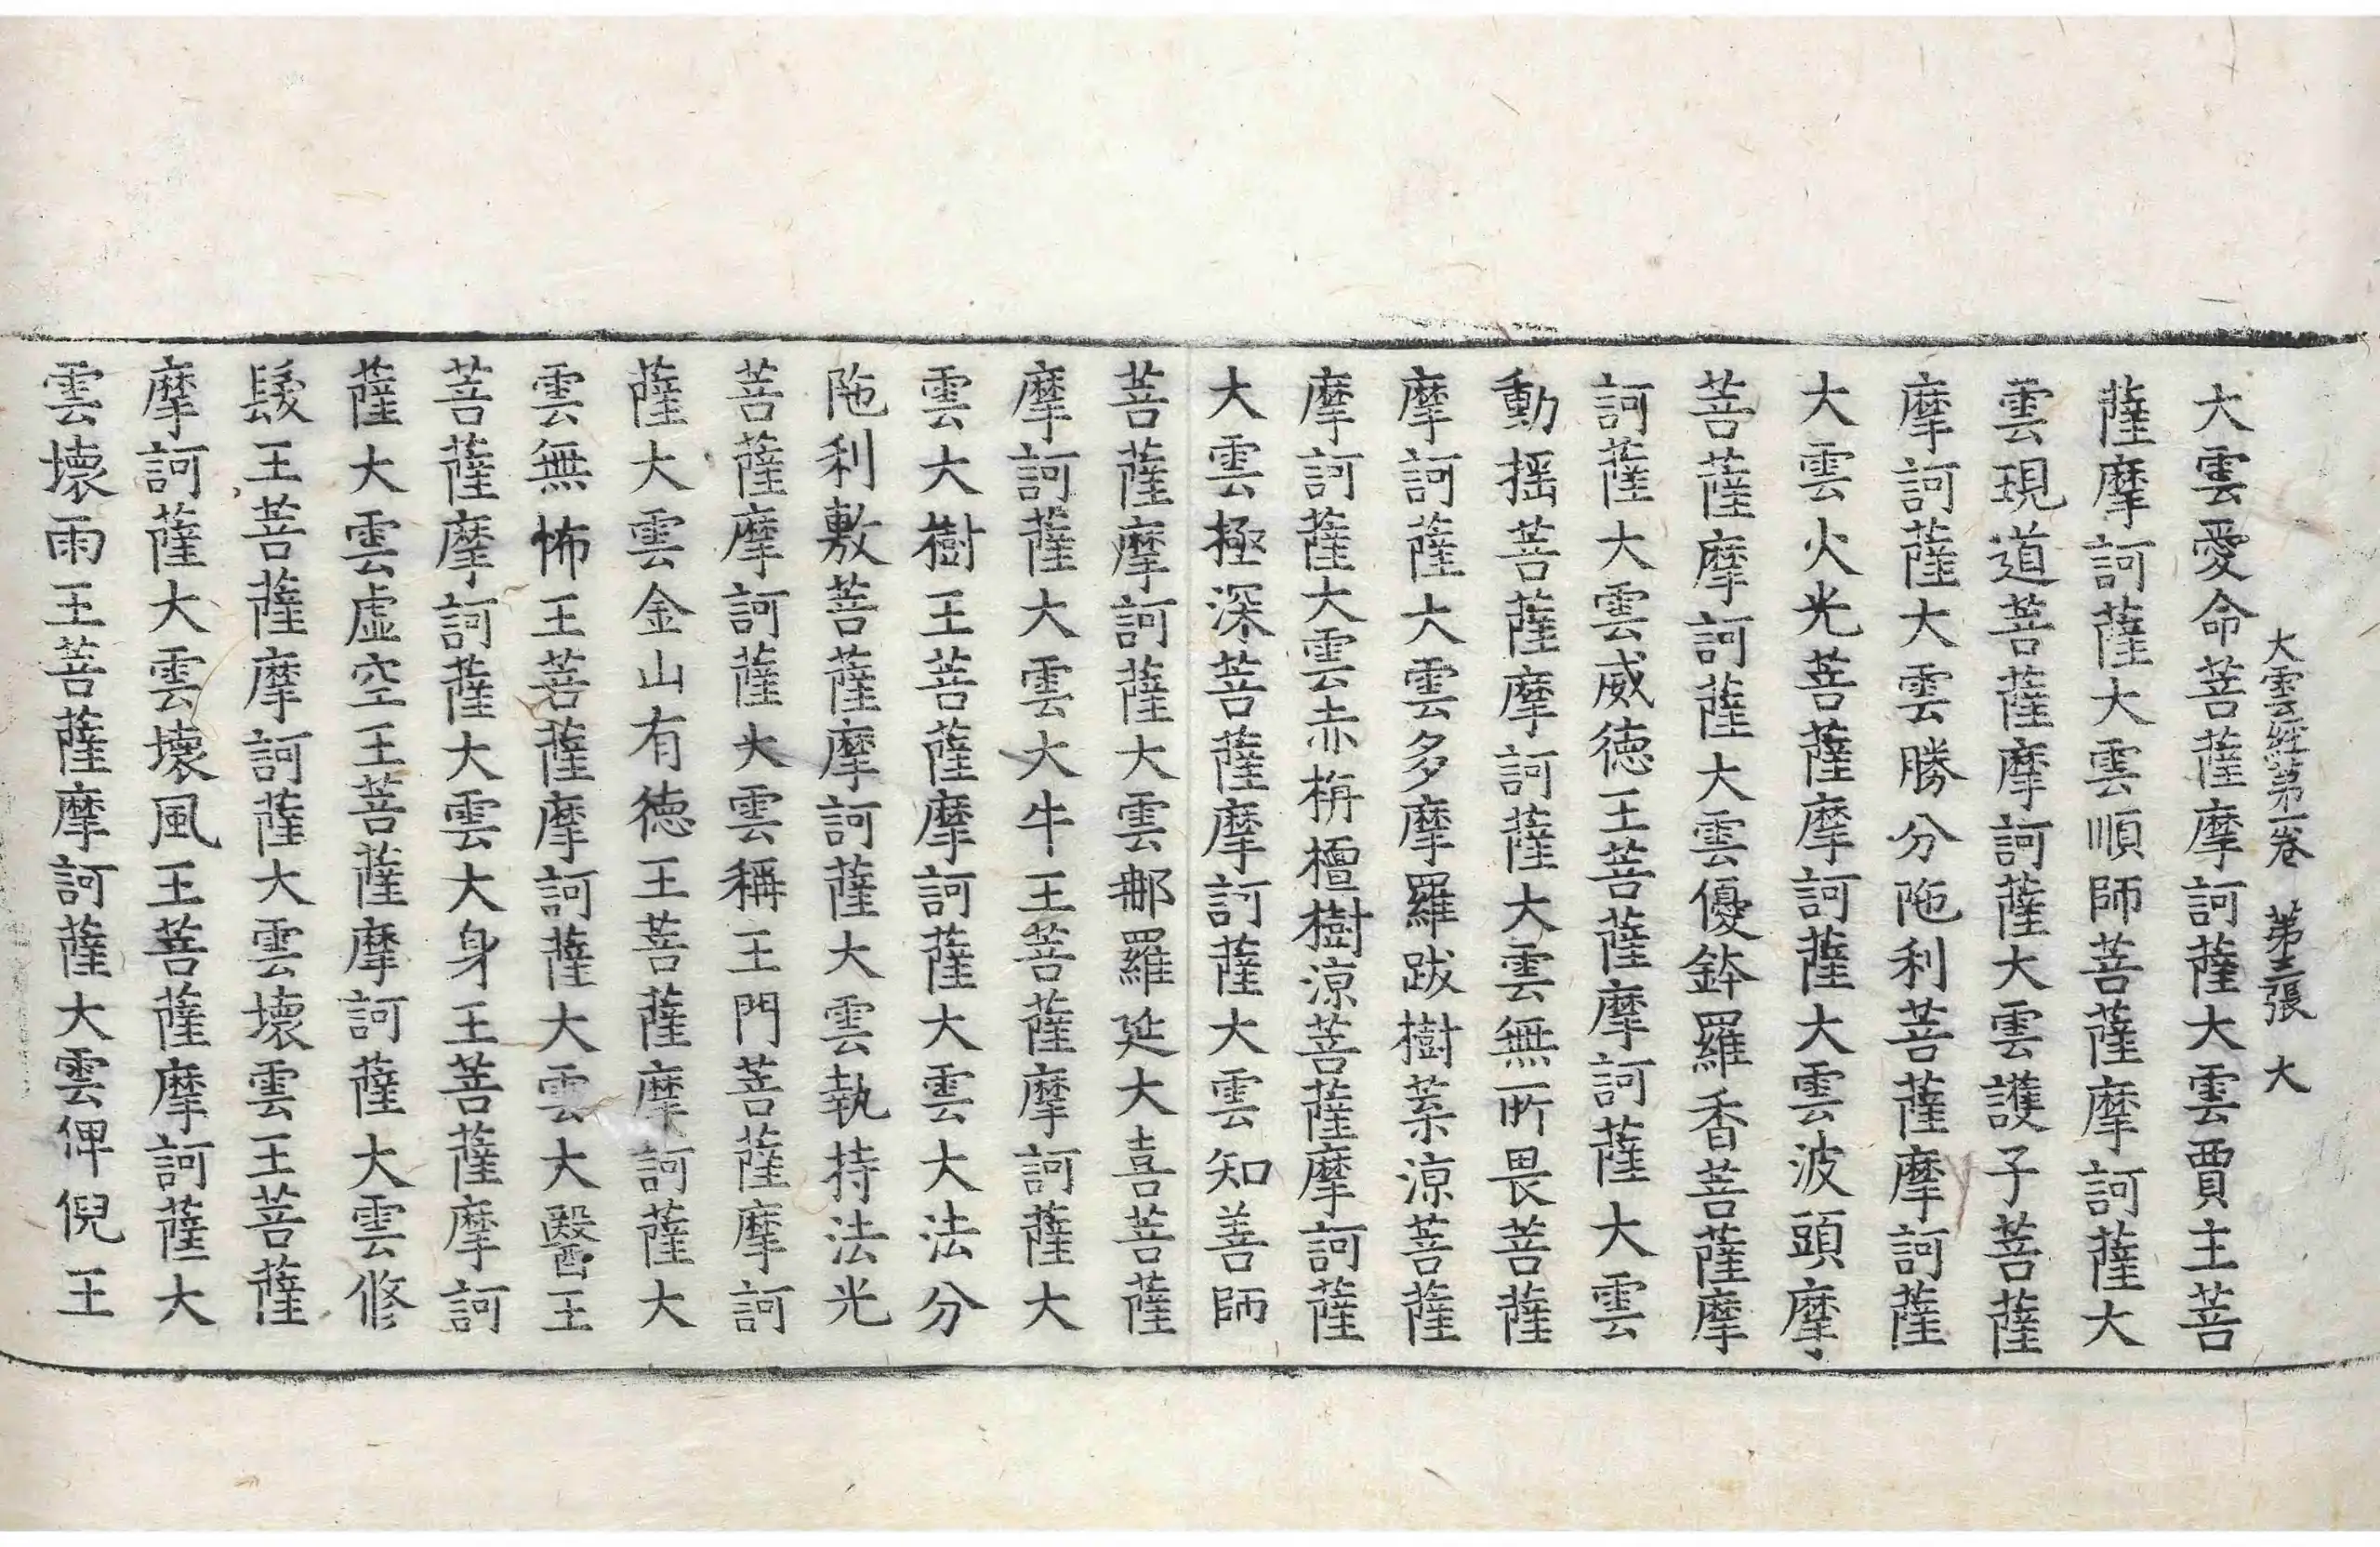 大雲經第一卷 第三張 大
大雲愛命菩薩摩訶薩大雲賈主菩
薩摩訶薩大雲順師菩薩摩訶薩大
雲現道菩薩摩訶薩大雲護子菩薩
摩訶薩大雲勝分陁利菩薩摩訶薩
大雲火光菩薩摩訶薩大雲波頭摩
菩薩摩訶薩大雲優鉢羅香菩薩摩
訶薩大雲威德王菩薩摩訶薩大雲
動揺菩薩摩訶薩大雲無所畏菩薩
摩訶薩大雲多摩羅跋樹葉涼菩薩
摩訶薩大雲赤栴檀樹涼菩薩摩訶薩
大雲極深菩薩摩訶薩大雲知善師
菩薩摩訶薩大雲郍羅延大喜菩薩
摩訶薩大雲大牛王菩薩摩訶薩大
雲大樹王菩薩摩訶薩大雲大法分
陁利敷菩薩摩訶薩大雲執持法光
菩薩摩訶薩大雲稱王門菩薩摩訶
薩大雲金山有德王菩薩摩訶薩大
雲無怖王菩薩摩訶薩大雲大醫王
菩薩摩訶薩大雲大身王菩薩摩訶
薩大雲虛空王菩薩摩訶薩大雲修
髮王菩薩摩訶薩大雲壞雲王菩薩
摩訶薩大雲壞風王菩薩摩訶薩大
雲壞雨王菩薩摩訶薩大雲俾倪王